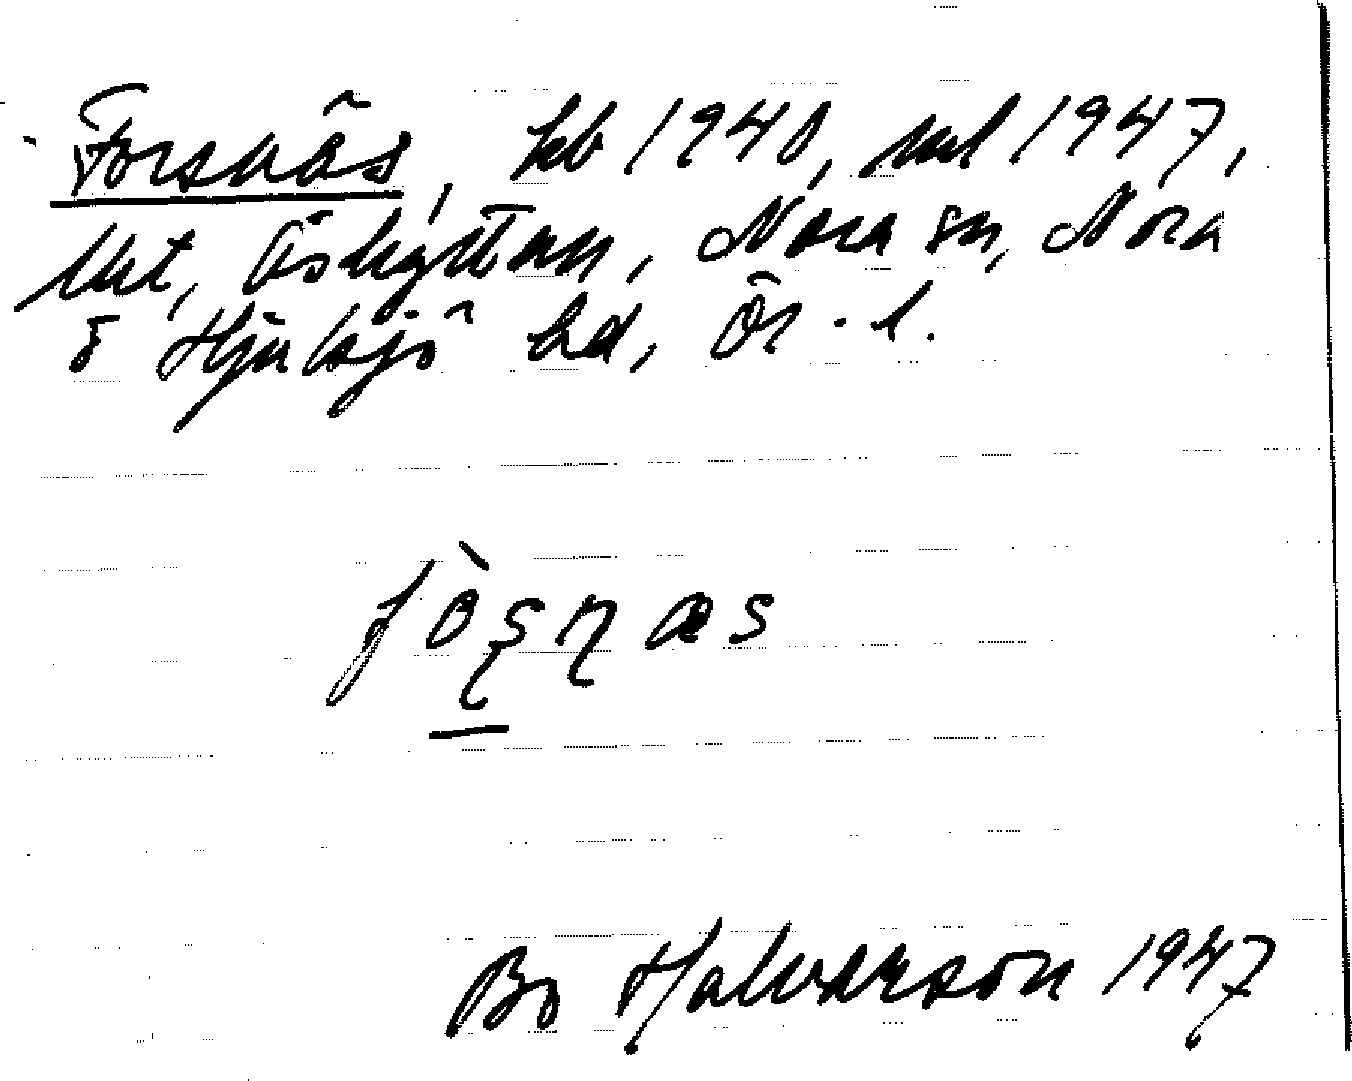 Forsnäs, kb 1940, ml 1947,
Mt, Öskyttan, Nora sn, Nora
o Hjulsjö hd, Ör. l.
fòșṇæs
Bo Halvarson 1947